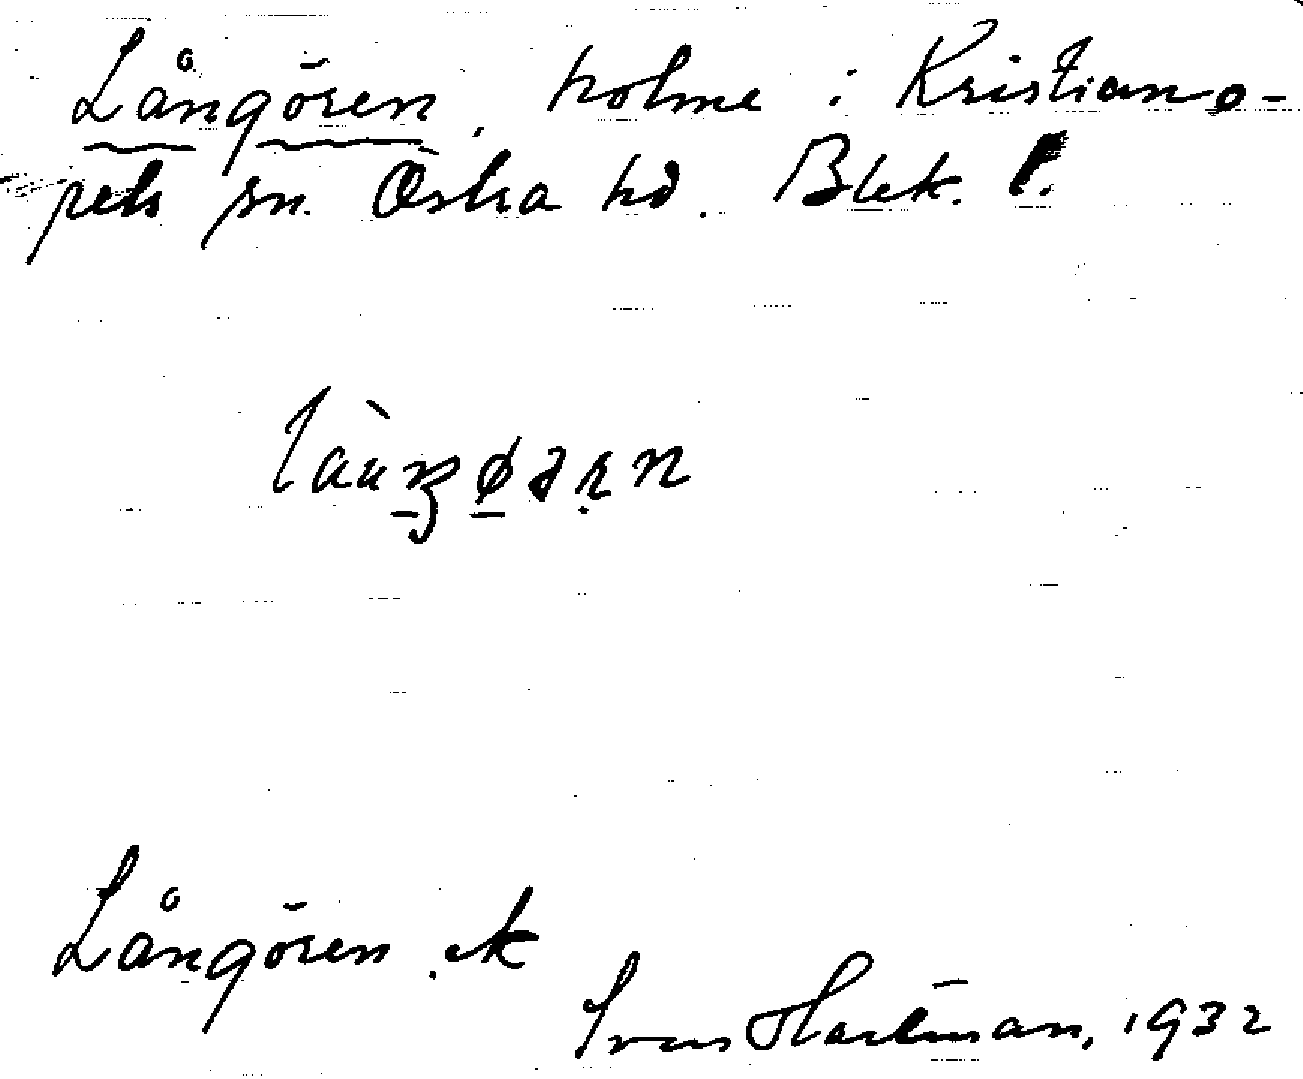 Långören, holme i Kristiano-
pels sn. Östra hd. Blek. l.
Långören. ek
Sven Hartman, 1932